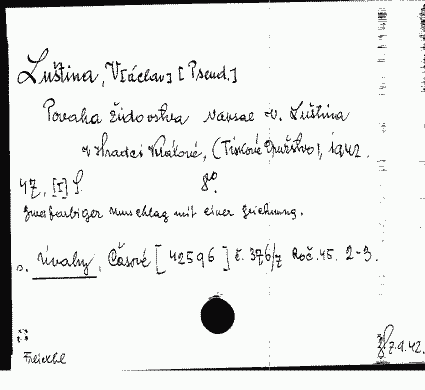 Luština, V[áclav] [Pseud.]
Povaha židovstva Napsal V. Luština
v Hradci Králové, (Tiskové Družstvo), 1942.
47, [I] S. 8°.
Zweifarbiger Umschlag mit einer Zeichnung.
Úvahy, Časové [42596] č. 376/7 Roč. 45. 2-3.
7.9.42.